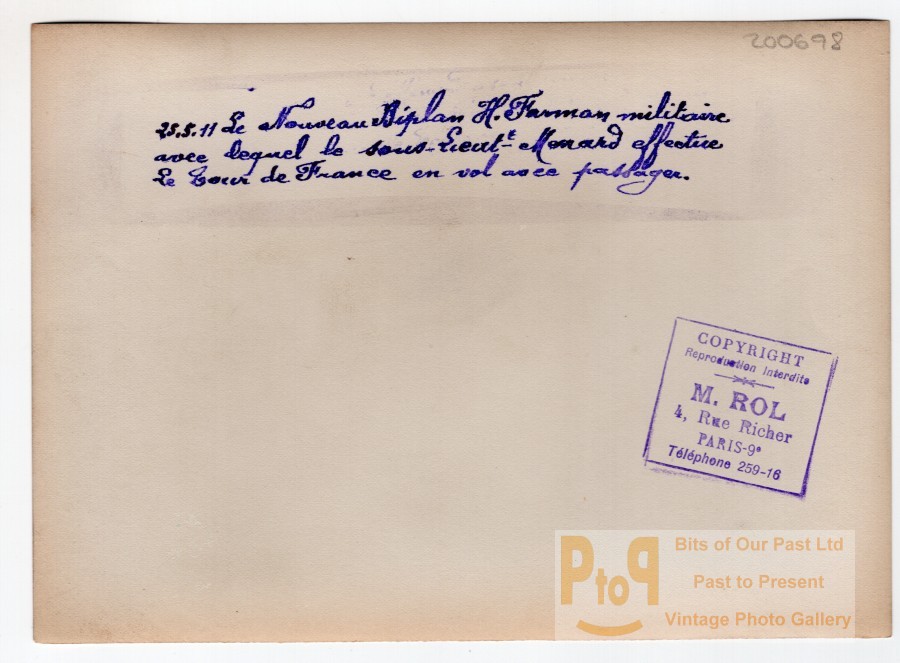 200698
25.5.11 Le Nouveau Biplan H. Farman militaire
avec lequel le sous-Lieutt Menard effectue
Le Tour de France en vol avec passager.
COPYRIGHT
Reproduction Interdite
M. ROL
4, Rue Richer
PARIS-9e
Téléphone 259-16
PtoP
Bits of Our Past Ltd
Past to Present
Vintage Photo Gallery